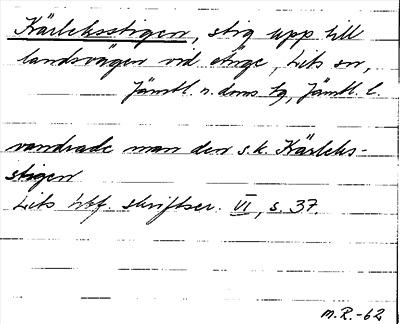 Kärleksstigen, stig upp till
landsvägen vid Änge, Lits sn,
Jämtl. n. doms tg, Jämtl. l.
vandrade man den s.k. Kärleks-
stigen
Lits hbf. skriftser. VI, s. 37.
M.R.-62